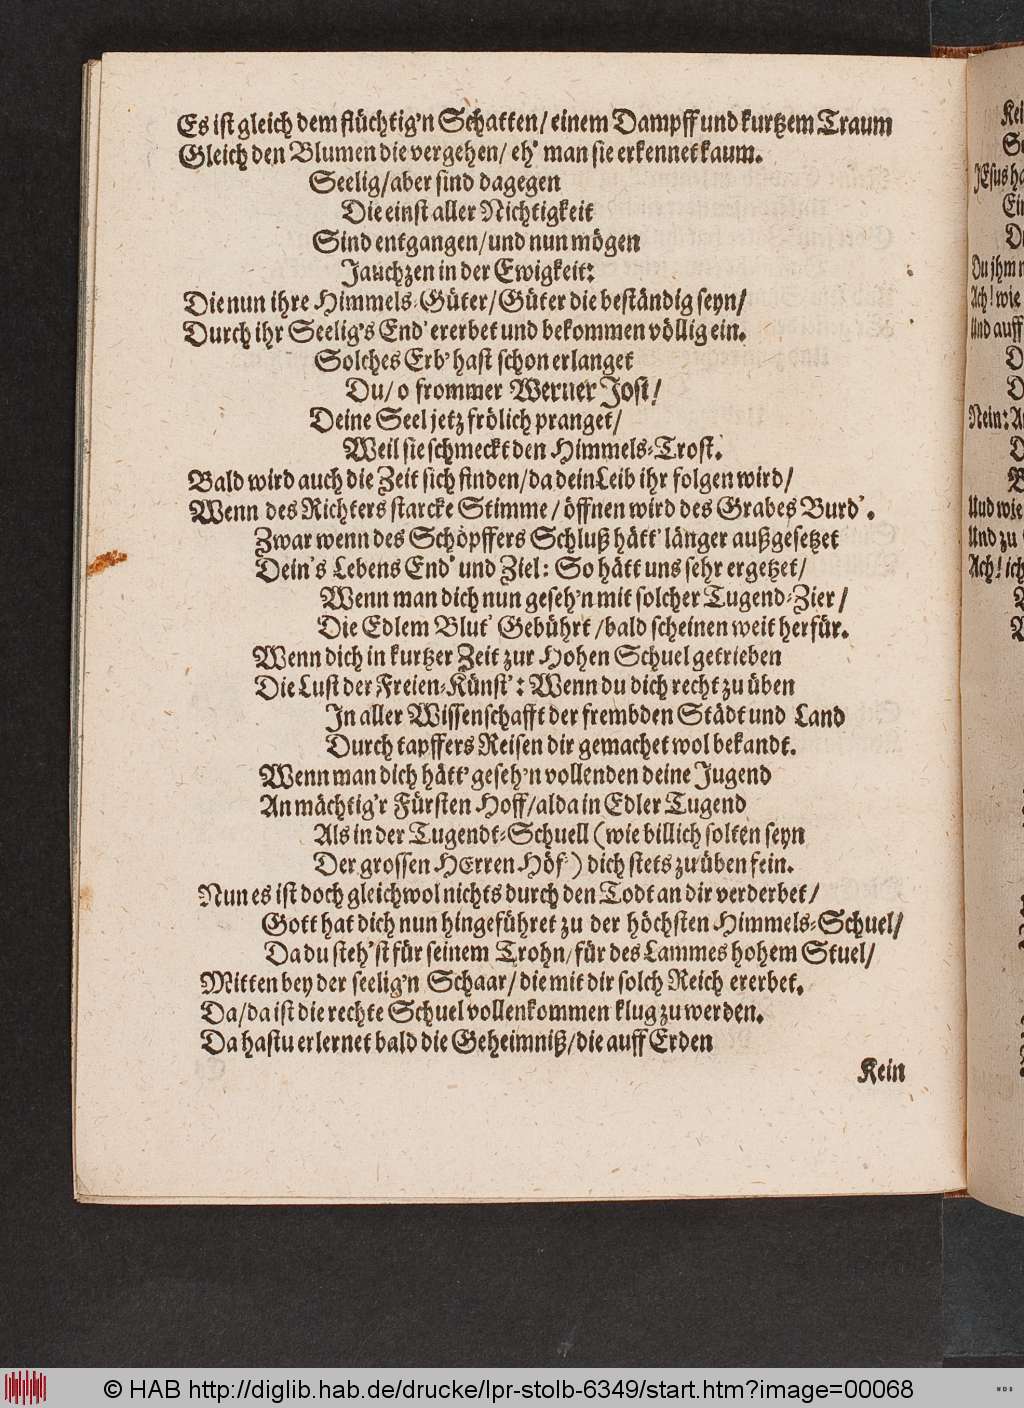 Es ist gleich dem flüchtig'n Schatten/ einem Dampff und kurtzem Traum
Gleich den Blumen die vergehen/ eh' man sie erkennet kaum.
Seelig/aber sind dagegen
Die einst aller Nichtigkeit
Sind entgangen/und nun mögen
Jauchzen in der Ewigkeit:
Die nun ihre Himmels-Güter/Güter die beständig seyn/
Durch ihr Seelig's End' ererbet und bekommen völlig ein.
Solches Erb' hast schon erlanget
Du/ o frommer Werner Jost/
Deine Seel jetz frölich pranget/
Weil sie schmeckt den Himmels-Trost.
Bald wird auch die Zeit sich finden/da dein Leib ihr folgen wird/
Wenn des Richters starcke Stimme/ öffnen wird des Grabes Burd'.
Zwar wenn des Schöpffers Schluß hätt' länger außgesetzet
Dein's Lebens End' und Ziel: So hätt uns sehr ergetzet/
Wenn man dich nun geseh'n mit solcher Tugend-Zier/
Die Edlem Blut' Gebührt/bald scheinen weit herfür.
Wenn dich in kurtzer Zeit zur Hohen Schuel getrieben
Die Lust der Freien-Künst': Wenn du dich recht zu üben
In aller Wissenschafft der frembden Städt und Land
Durch tapffers Reisen dir gemachet wol bekandt.
Wenn man dich hätt' geseh'n vollenden deine Jugend
An mächtig'r Fürsten Hoff/alda in Edler Tugend
Als in der Tugendt-Schuell (wie billich solten seyn
Der grossen HErren Höf') dich stets zu üben fein.
Nun es ist doch gleichwol nichts durch den Todt an dir verderbet/
Gott hat dich nun hingeführet zu der höchsten Himmels-Schuel/
Da du steh'st für seinem Trohn/für des Lammes hohem Stuel/
Mitten bey der seelig'n Schaar/die mit dir solch Reich ererbet.
Da/da ist die rechte Schuel vollenkommen klug zu werden.
Da hastu erlernet bald die Geheimniß/die auff Erden
Kein
Kei
JEsus ha
Ein
Du jhm
Ach! wie
Und auff
Nein:
Und wie
Und zu
Ach! ich
© HAB http://diglib.hab.de/drucke/lpr-stolb-6349/start.htm?image=00068